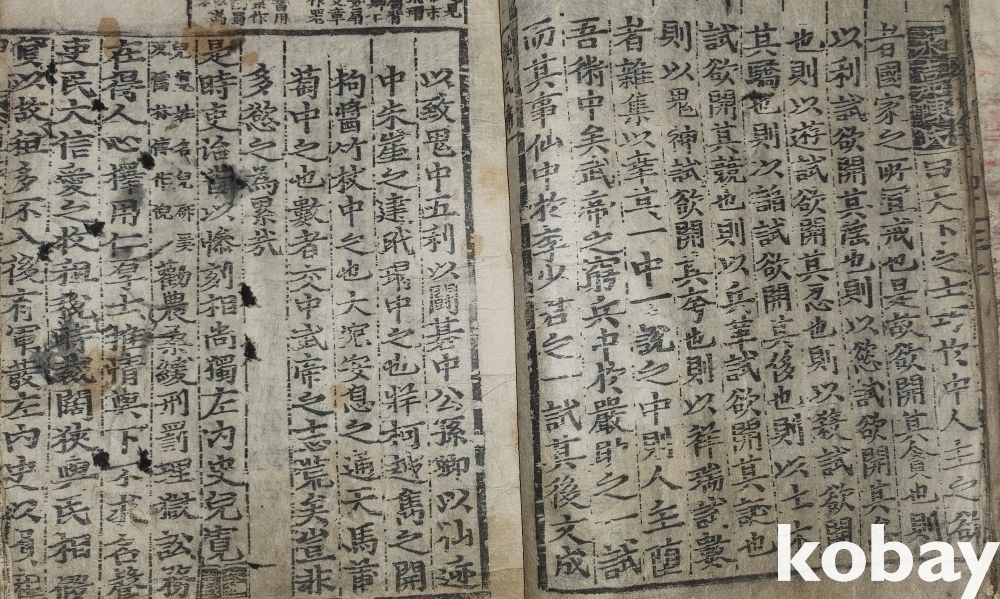 曰天下之士巧於中人主之欲
昔國家之所宣戒也是故欲開其貪也則
以利試欲開其滛也則以慾試欲開其
也則以遊試欲開其忍也則以殺試欲開
其驕也則以謟試欲開其侈也則以土木
試欲開其競也則以兵革試欲開其誕也
則以鬼神試欲開其夸也則以祥瑞試數
者雜集以華其一中一說之中則人主墮
吾術中矣武帝之窮兵中於嚴助之一試
而其事仙中於李少君之一試其後文成
以致鬼中五利以鬪棊中公孫卿以仙迹
中朱崖之達玳瑁中之也牂柯越嶲之開
枸醬竹杖中之也大宛安息之通天馬葡
萄中之也數者交中武帝之志荒矣豈非
多慾之為累哉
是時吏治皆以慘刻相尚獨左内史兒寬
勸農桑緩刑罰理獄訟務
在得人心擇用仁厚士推情與下不求名聲
吏民大信愛之收租稅時裁闊狹與民相假
貸以故租多不入後有軍發左内史以負租
kobay